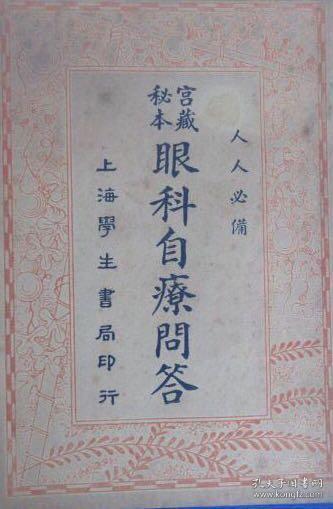 人人必備
宮藏
秘本
眼科自療問答
上海學生書局印行
孔夫子旧书网
www.kongfz.com